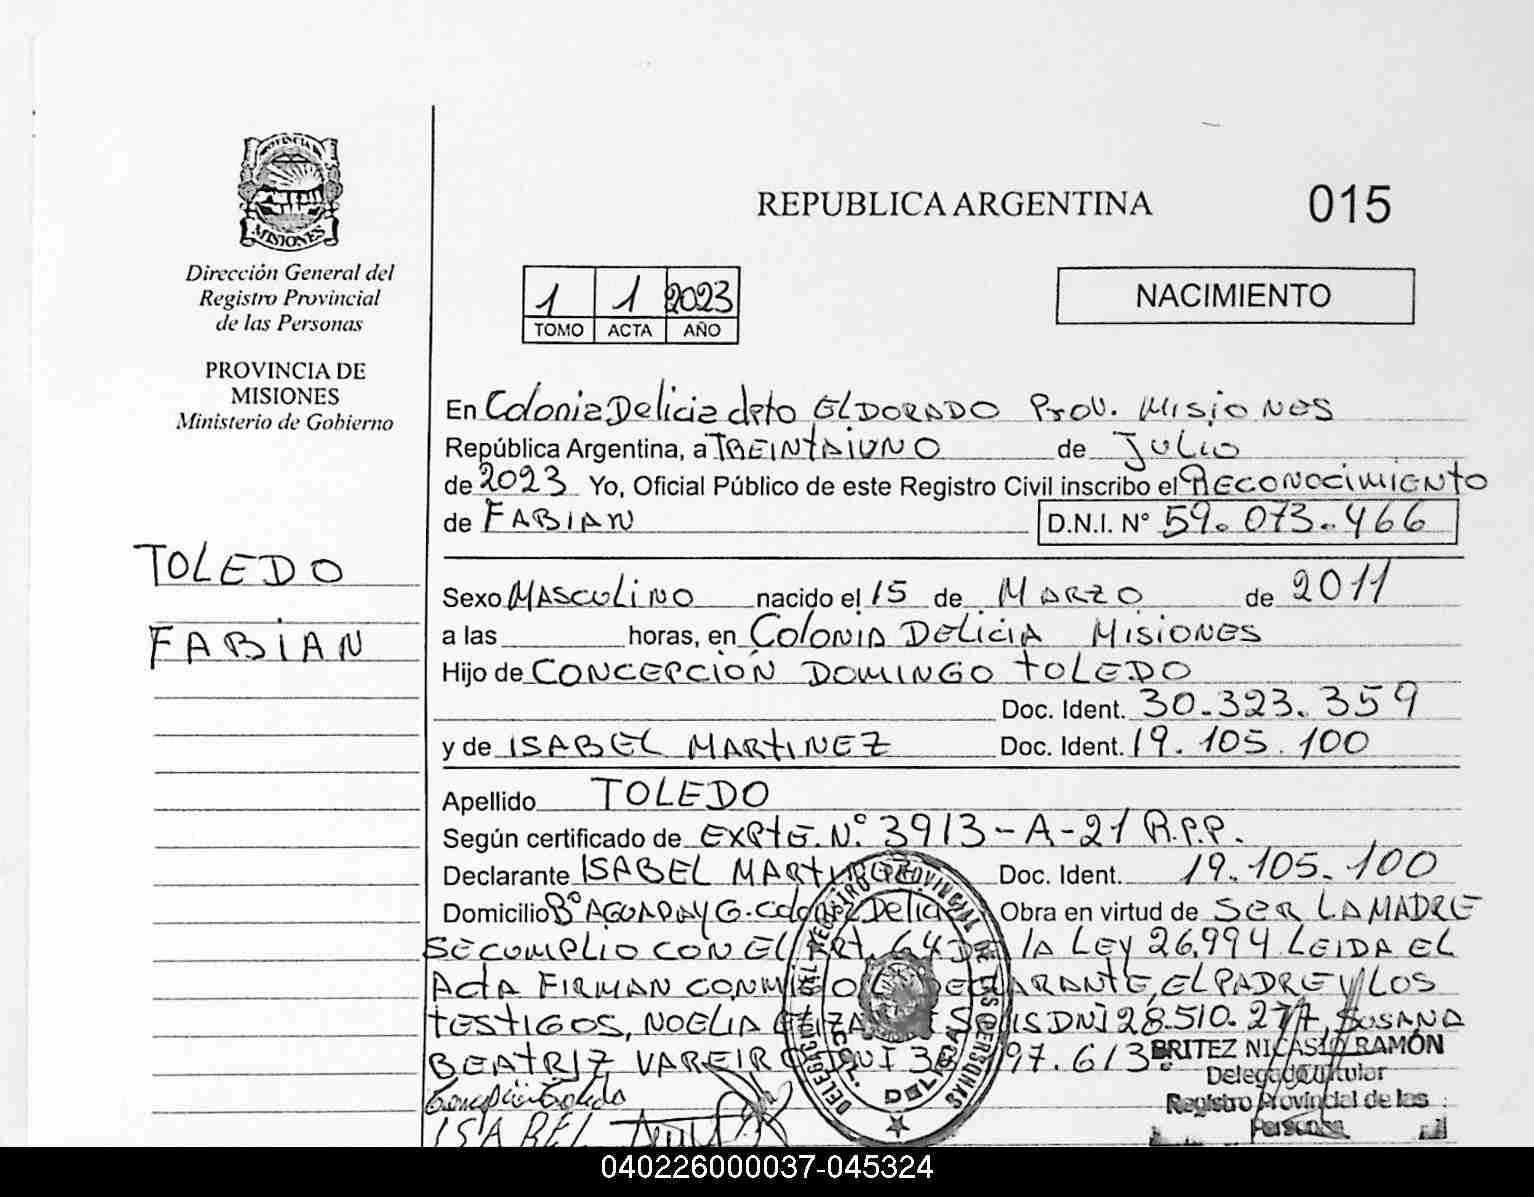 PROVINCIA DE
MISIONES
Dirección General del
Registro Provincial
de las Personas
PROVINCIA DE
MISIONES
Ministerio de Gobierno
TOLEDO
FABIAN
REPUBLICA ARGENTINA 015
1 1 2023
TOMO ACTA AÑO
NACIMIENTO
En Colonia Delicia dpto ELDORADO Prov. Misiones
República Argentina, a TREINTAIUNO de JULIO
de 2023 Yo, Oficial Público de este Registro Civil inscribo el RECONOCIMIENTO
de FABIAN D.N.I. N° 59.073.466
Sexo MASCULINO nacido el 15 de MARZO de 2011
a las horas, en COLONIA DELICIA MISIONES
Hijo de CONCEPCIÓN DOMINGO TOLEDO
Doc. Ident. 30.323.359
y de ISABEL MARTINEZ Doc. Ident. 19.105.100
Apellido TOLEDO
Según certificado de EXPTE. N.° 3913-A-21 R.P.P.
Declarante ISABEL MARTINEZ Doc. Ident. 19.105.100
Domicilio B° AGUARAY G. Delicia Obra en virtud de SER LA MADRE
SE CUMPLIO CON EL ART. 64 DE LA LEY 26.994 LEIDA EL
ACTA FIRMAN CONMIGO DECLARANTE, EL PADRE Y LOS
TESTIGOS, NOELIA DNI 28.510.277, SUSANA
BEATRIZ VAREIRO DNI 97.613.
BRITEZ NICASIO RAMÓN
Delegado Titular
Registro Provincial de las
Personas
Concepción Toledo
ISABEL
DELEGACION DEL REGISTRO PROVINCIAL DE LAS PERSONAS
040226000037-045324